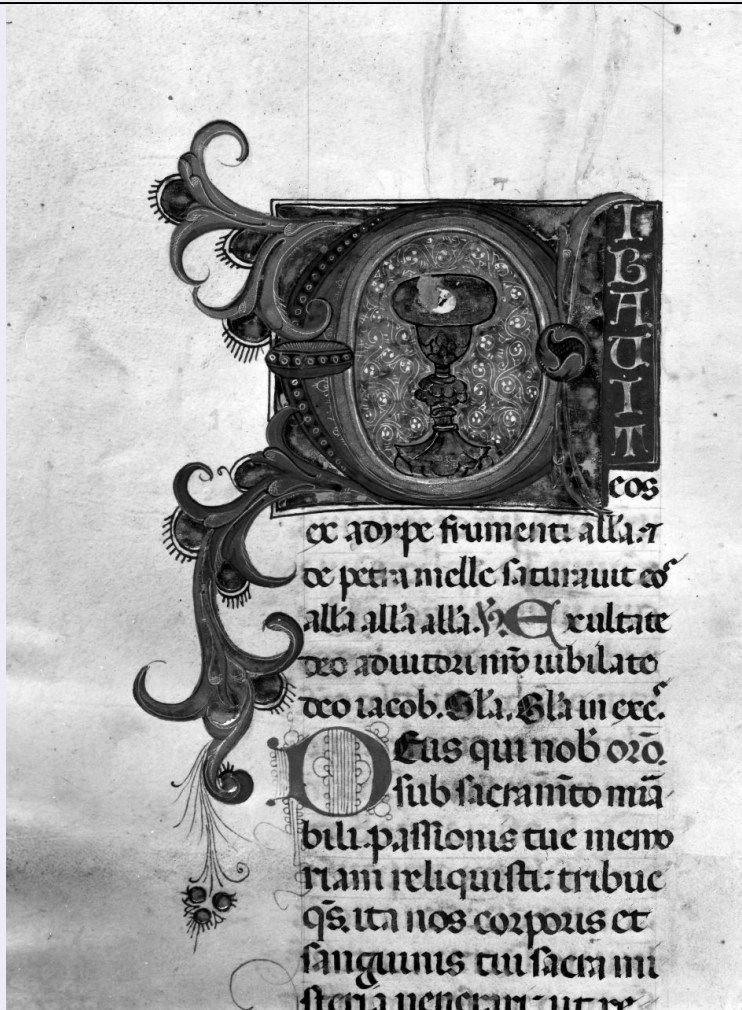 CIBAVIT
eos
ex adype frumenti all'a. 7
de petra melle saturauit eos
all'a all'a all'a. V. Exultate
deo adiutori nr̄o iubilate
deo iacob. Gl'a. Gl'a in exc.
DEus qui nob' orō.
sub sacram̄to mīa
bili. passionis tue memo
riam reliquisti: tribue
qs̄. ita nos corporis et
sanguinis tui sacra mi
steria uenerari: ut re